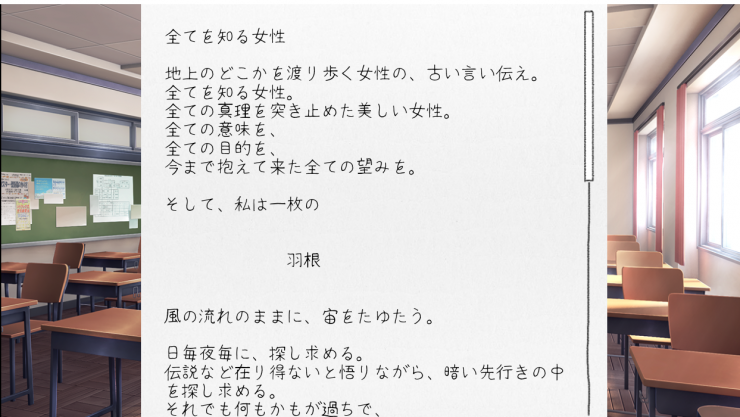 全てを知る女性
地上のどこかを渡り歩く女性の、古い言い伝え。
全てを知る女性。
全ての真理を突き止めた美しい女性。
全ての意味を、
全ての目的を、
今まで抱えて来た全ての望みを。
そして、私は一枚の
羽根
風の流れのままに、宙をたゆたう。
日毎夜毎に、探し求める。
伝説など在り得ないと悟りながら、暗い先行きの中
を探し求める。
それでも何もかもが過ちで、